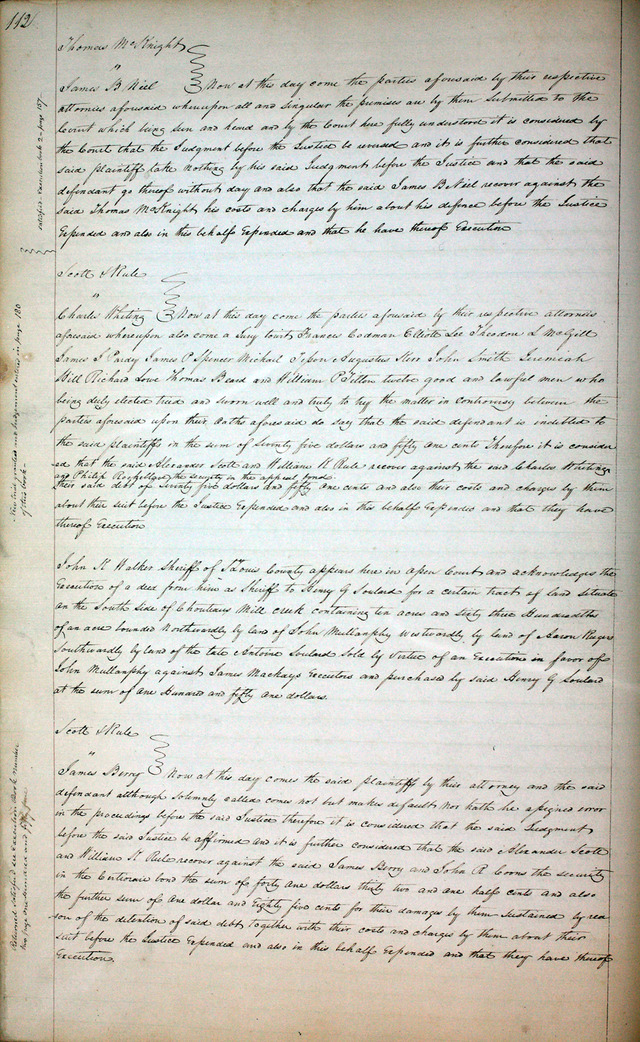 112
Thomas McKnight
"
James B Neil Now at this day come the parties aforesaid by their respective
attornies aforesaid whereupon all and singular the premises are by them submitted to the
Court which being seen and heard and by the Court here fully understood it is considered by
the Court that the Judgment before the Justice be reversed and it is further considered that
said plaintiff take nothing by his said Judgment before the Justice and that the said
defendant go thereof without day and also that the said James B Neil recover against the
said Thomas McKnight his costs and charges by him about his defence before the Justice
Expended and also in this behalf Expended and that he have thereof Execution
satisfied Execution book 2 page 187
Scott & Rule
"
Charles Whiting Now at this day come the parties aforesaid by their respective attornies
aforesaid whereupon also come a Jury towit Francis Codman Elliott Lee Theodore L McGill
James J Purdy James P Spencer Michael Augustus John Smith Jeremiah
Hill Richard Lowe Thomas Beard and William P Tilton twelve good and lawful men who
being duly elected tried and sworn well and truly to try the matter in controversy between the
parties aforesaid upon their Oaths aforesaid do say that the said defendant is indebted to
the said plaintiffs in the sum of Seventy five dollars and fifty One cents Therefore it is consider
ed that the said Alexander Scott and William K Rule recover against the said Charles Whiting
and Philip Rochelford the security in the appeal bond
their said debt of Seventy five dollars and fifty One cents and also their costs and charges by them
about their suit before the Justice Expended and also in this behalf Expended and that they have
thereof Execution
New trial granted and Judgment entered in page 180
of this book
John K Walker Sheriff of St Louis County appears here in Open Court and acknowledges the
Execution of a deed from him as Sheriff to Henry G Soulard for a certain tract of land situate
on the South side of Chouteaus Mill creek containing ten acres and sixty three Hundredths
of an acre bounded Northwardly by land of John Mullanphy westwardly by land of Aaron
Southwardly by land of the late Antoine Soulard Sold by Virtue of an Execution in favor of
John Mullanphy against James Mackays Executors and purchased by said Henry G Soulard
at the sum of One Hundred and fifty One dollars.
Scott & Rule
"
James Berry Now at this day comes the said plaintiffs by their attorney and the said
defendant although Solemnly called comes not but makes default Nor hath he assigned error
in the proceedings before the said Justice therefore it is considered that the said Judgment
before the said Justice be affirmed and it is further considered that the said Alexander Scott
and William K Rule recover against the said James Berry and John R Coons the security
in the Certiorari bond the sum of forty One dollars thirty two and One half cents and also
the further sum of One dollar and Eighty five cents for their damages by them Sustained by rea
son of the detention of said debt Together with their costs and charges by them about their
suit before the Justice Expended and also in this behalf Expended and that they have thereof
Execution.
Returned Satisfied see Execution Book Number
two page One hundred and fifty four